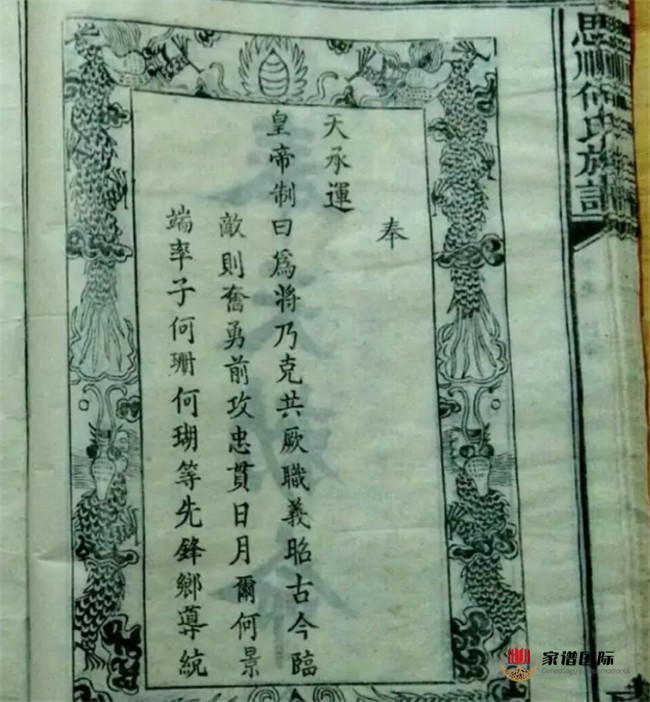 奉
天承運
皇帝制曰爲將乃克共厥職義昭古今臨
敵則奮勇前攻忠貫日月爾何景
端率子何珊何瑚等先鋒鄉導統
思順何氏族譜
家谱国际
Genealogy International